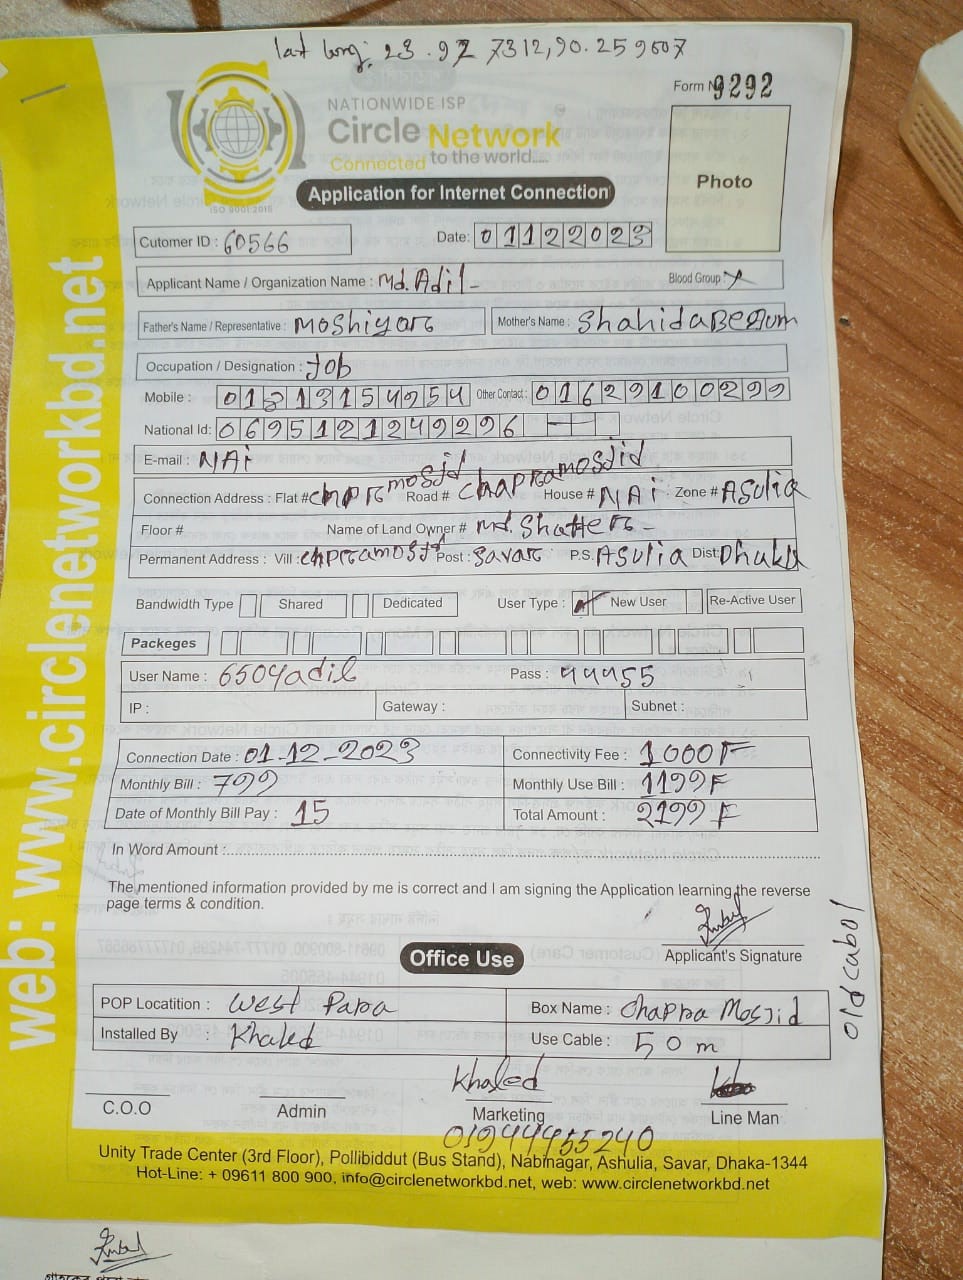 lat long: 23.927312,90.259607
Form N 9292
NATIONWIDE ISP
Circle Network
Connected to the world....
ISO 9001:2015
Photo
Application for Internet Connection
Cutomer ID : 60566
Date: 01122023
Applicant Name / Organization Name : Md. Adil
Blood Group :
Father's Name / Representative : Moshiyar
Mother's Name : Shahida Begum
Occupation / Designation : Job
Mobile : 01813154954 Other Contact : 01629100299
National Id: 0695121249296
E-mail : NAi
Connection Address : Flat # chpra mosjid Road # chapramosjid House # NAi Zone # Asulia
Floor # Name of Land Owner # md. Shaffer
Permanent Address : Vill : chpramosjid Post : Savar P.S. Asulia Dist: Dhaka
Bandwidth Type Shared Dedicated User Type : New User Re-Active User
Packeges
User Name : 6504adil Pass : 44455
IP : Gateway : Subnet :
Connection Date : 01-12-2023 Connectivity Fee : 1000
Monthly Bill : 799 Monthly Use Bill : 1199
Date of Monthly Bill Pay : 15 Total Amount : 2199
In Word Amount :
The mentioned information provided by me is correct and I am signing the Application learning the reverse
page terms & condition.
Applicant's Signature
Office Use
POP Locatition : West Para Box Name : Chapra Mosjid
Installed By : Khaled Use Cable : 50m
old cabol
C.O.O
Admin
Khaled
Marketing
01944455240
Line Man
Unity Trade Center (3rd Floor), Pollibiddut (Bus Stand), Nabinagar, Ashulia, Savar, Dhaka-1344
Hot-Line: + 09611 800 900, info@circlenetworkbd.net, web: www.circlenetworkbd.net
web: www.circlenetworkbd.net